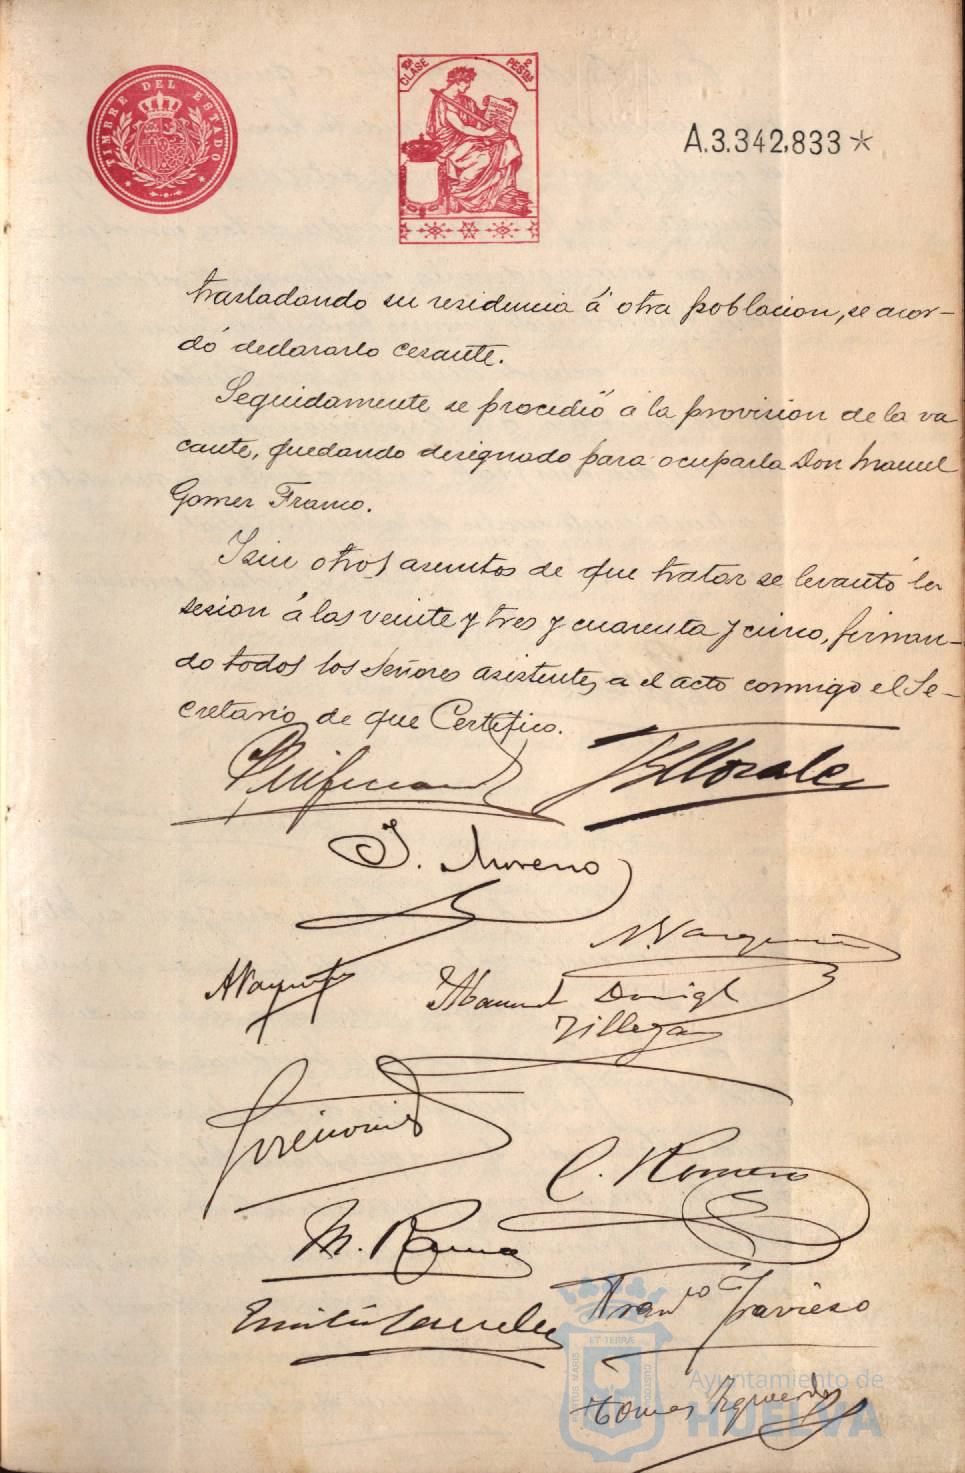 TIMBRE DEL ESTADO
10ª CLASE 2 PESTAS
A.3.342,833*
trasladando su residencia á otra poblacion, se acor-
dó declararlo cesante.
Seguidamente se procedió á la provision de la va
cante, quedando designado para ocuparla Don Manuel
Gomez Franco.
Y sin otros asuntos de que tratar se levantó la
sesion á las veinte y tres y cuarenta y cinco, firman-
do todos los señores asistentes a el acto conmigo el Se-
cretario de que Certifico.
J. Moreno
Manuel Domigz
Villegas
C. Romero
M.
Franco Travieso
Tomas Izquierdo
PORTUS MARIS ET TERRÆ CUSTODIA
Ayuntamiento de
HUELVA